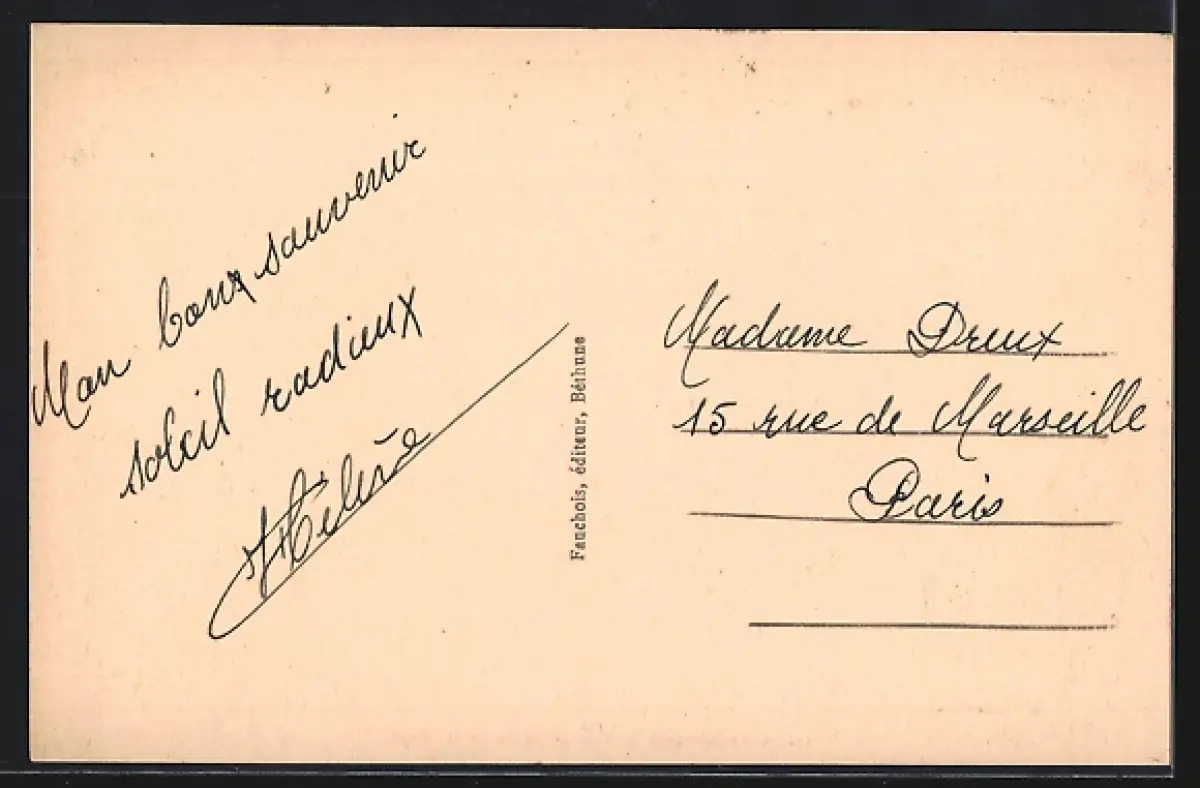 Mon bon souvenir
soleil radieux
Hélène
Fauchois, éditeur, Béthune
Madame Dreux
15 rue de Marseille
Paris